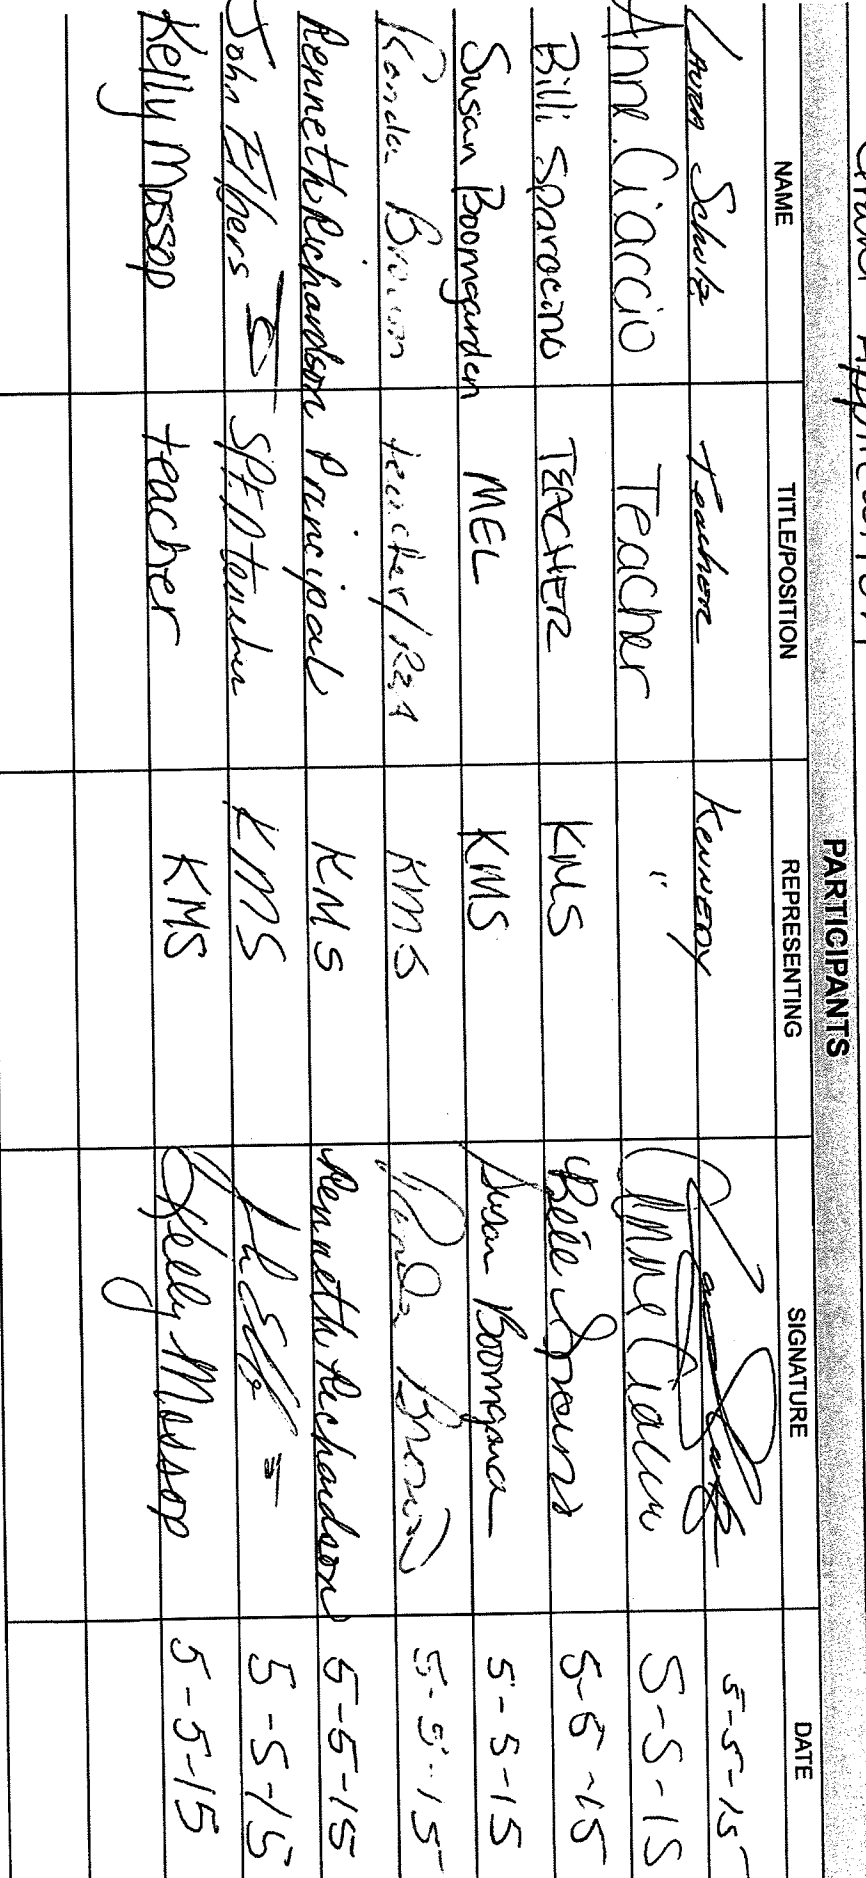 PARTICIPANTS
NAME TITLE/POSITION REPRESENTING SIGNATURE DATE
LAURA Schulz Teacher KENNEDY 5-5-15
Anne Ciaccio Teacher " Anne Ciaccio 5-5-15
Billi Sparacino TEACHER KMS 5-5-15
Susan Boomgarden MEL KMS Susan Boomgarden 5-5-15
Ronda Brown teacher/REA KMS Ronda Brown 5-5-15
Kenneth Richardson Principal KMS Kenneth Richardson 5-5-15
John Elbers SPED teacher KMS 5-5-15
Kelly Mossop teacher KMS Kelly Mossop 5-5-15